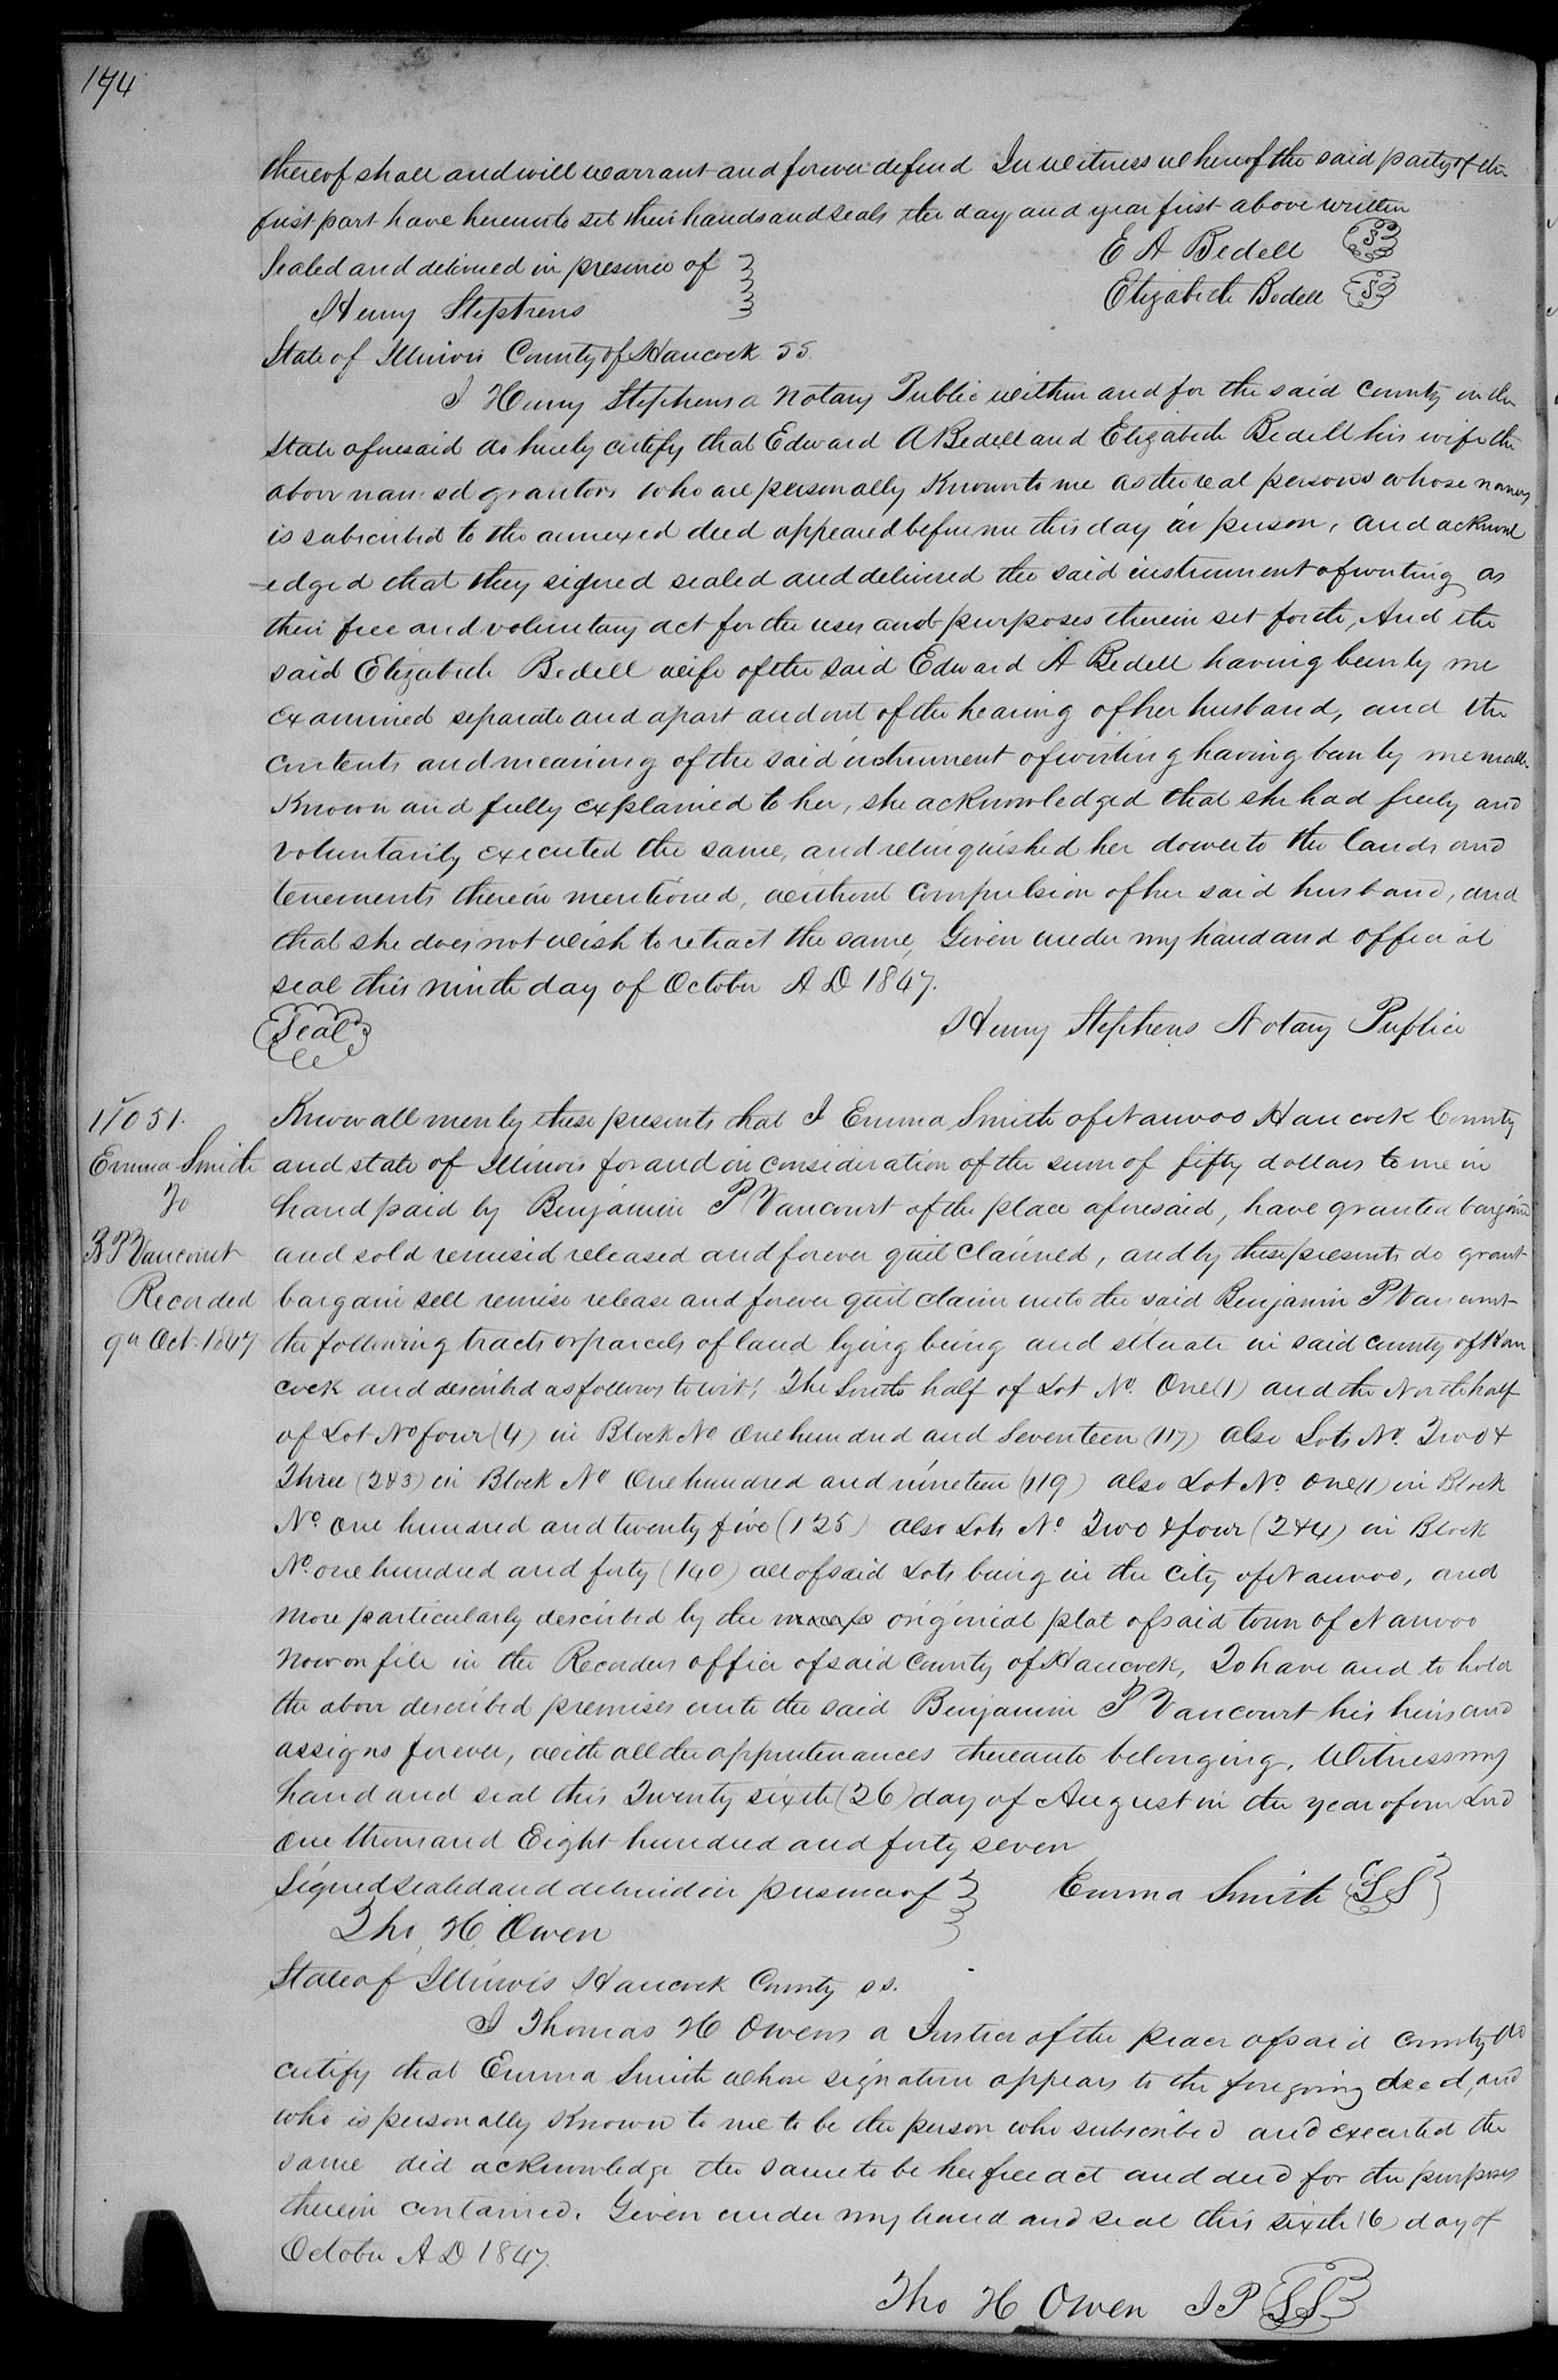 174
thereof shall and will warrant and forever defend In witness whereof the said party of the
first part have hereunto set their hands and seals the day and year first above written
Sealed and delivered in presence of
E A Bedell S
Henry Stephens
Elizabeth Bedell S
State of Illinois County of Hancock SS.
I Henry Stephens a Notary Public within and for the said County in the
State aforesaid do hereby certify that Edward A Bedell and Elizabeth Bedell his wife the
above named grantors who are personally Known to me as the real persons whose names
is subscribed to the annexed deed appeared before me this day in person, and acknowl
-edged that they signed sealed and delivered the said instrument of writing as
their free and voluntary act for the uses and purposes therein set forth, And the
said Elizabeth Bedell wife of the said Edward A Bedell having been by me
examined separate and apart and out of the hearing of her husband, and the
contents and meaning of the said instrument of writing having been by me made
Known and fully explained to her, she acknowledged that she had freely and
voluntarily executed the same, and relinquished her dower to the lands and
tenements therein mentioned, without compulsion of her said husband, and
that she does not wish to retract the same, Given under my hand and official
seal this ninth day of October A D 1847.
Seal
Henry Stephens Notary Public
11051.
Emma Smith
To
B P Vancourt
Recorded
9th Oct. 1847
Know all men by these presents that I Emma Smith of Nauvoo Hancock County
and state of Illinois for and in consideration of the sum of fifty dollars to me in
hand paid by Benjamin P Vancourt of the place aforesaid, have granted bargained
and sold remised released and forever quit claimed, and by these presents do grant
bargain sell remise release and forever quit claim unto the said Benjamin P Vancourt
the following tracts or parcels of land lying being and situate in said county of Han
cock and described as follows to wit; The South half of Lot No. One (1) and the North half
of Lot No four (4) in Block No One hundred and Seventeen (117) also Lots No. Two &
Three (2&3) in Block No One hundred and nineteen (119) also Lot No. one (1) in Block
No. One hundred and twenty five (125) also Lots No Two & four (2&4) in Block
No. one hundred and forty (140) all of said Lots being in the City of Nauvoo, and
more particularly described by the origonial plat of said town of Nauvoo
now on file in the Recorders office of said County of Hancock, To have and to hold
the above described premises unto the said Benjamin P Vancourt his heirs and
assigns forever, with all the appurtenances thereunto belonging. Witness my
hand and seal this Twenty sixth (26) day of August in the year of our Lord
One thousand Eight hundred and forty seven
Signed sealed and delivered in presence of
Emma Smith LS
Tho. H. Owen
State of Illinois Hancock County ss.
I Thomas H Owens a Justice of the peace of said County do
certify that Emma Smith whose signature appears to the foregoing deed, and
who is personally Known to me to be the person who subscribed and executed the
same did acknowledge the same to be her free act and deed for the purposes
therein contained. Given under my hand and seal this sixth (6) day of
October A D 1847.
Tho H Owen J P LS